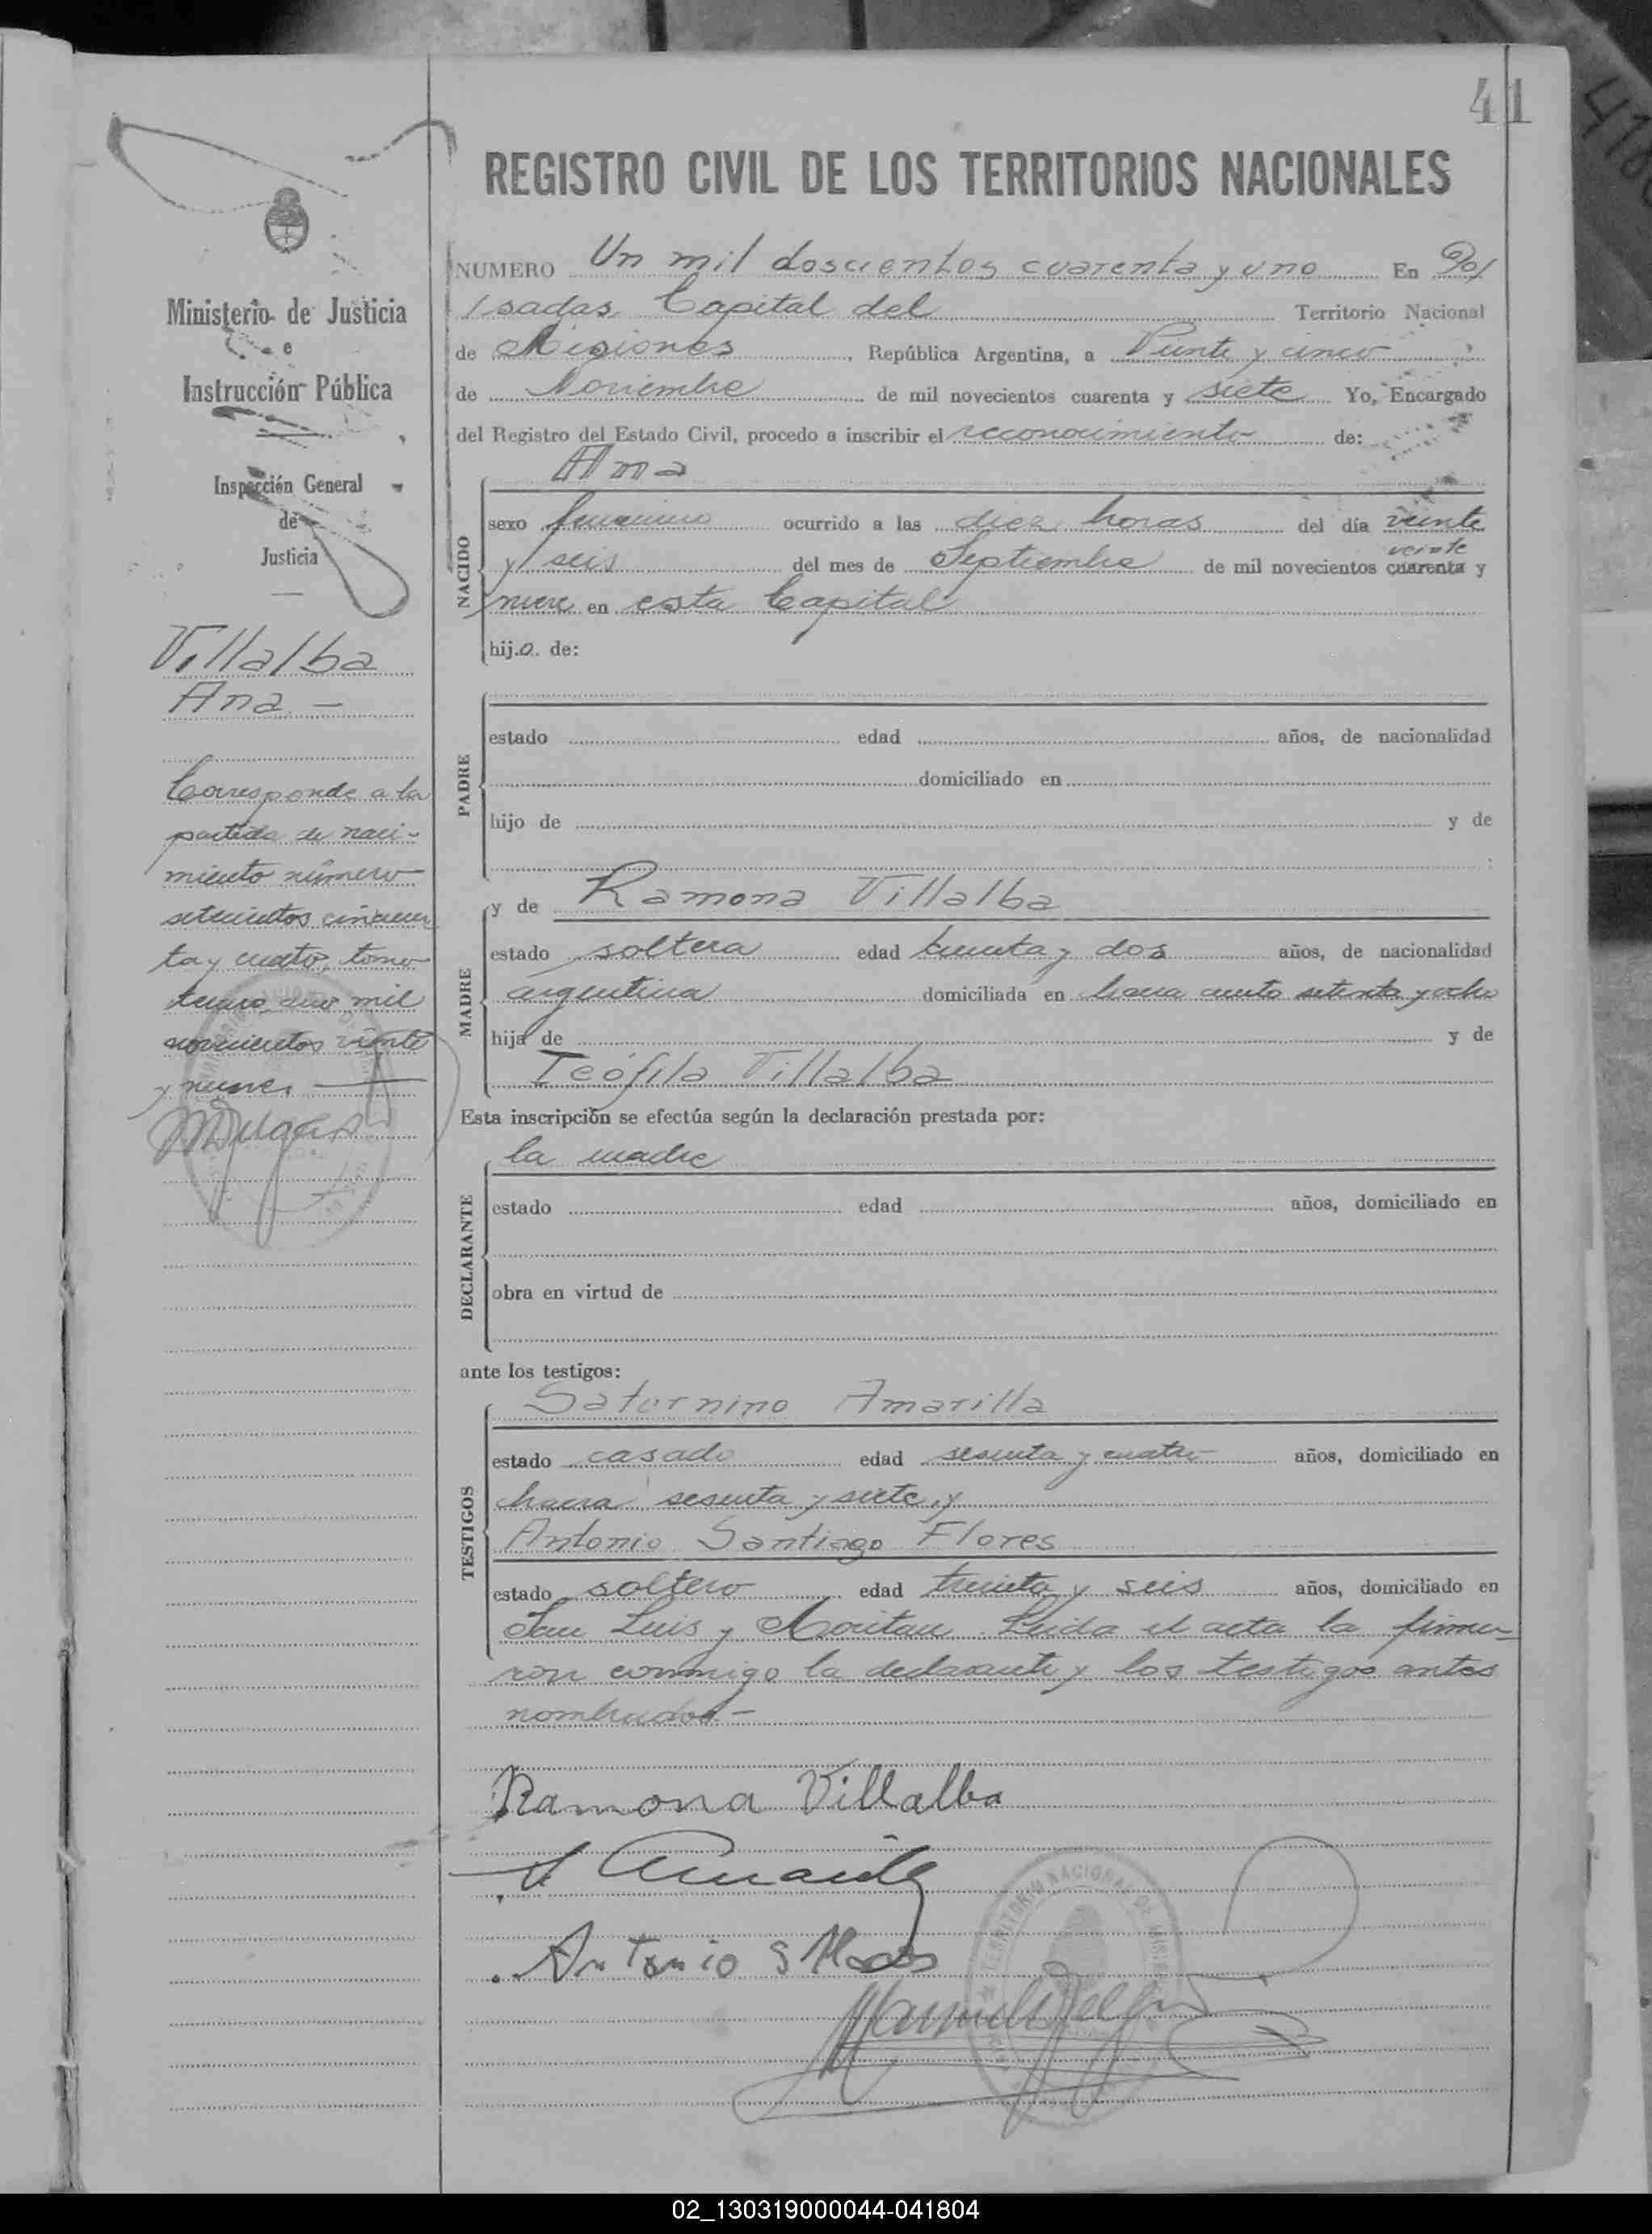 41
REGISTRO CIVIL DE LOS TERRITORIOS NACIONALES
Ministerio de Justicia
e
Instrucción Pública
Inspección General
de
Justicia
Villalba
Ana -
Corresponde a la
partida de naci-
miento número
setecientos cincuen
ta y cuatro, tomo
tercero, año mil
novecientos veinte
y nueve.
NUMERO Un mil doscientos cuarenta y uno En Po/
/sadas, Capital del Territorio Nacional
de Misiones, República Argentina, a Veinte y cinco
de Noviembre de mil novecientos cuarenta y siete Yo, Encargado
del Registro del Estado Civil, procedo a inscribir el reconocimiento de:
NACIDO
Ana
sexo femenino ocurrido a las diez horas del día veinte
veinte
y seis del mes de Septiembre de mil novecientos cuarenta y
nueve en esta Capital
hij.a. de:
PADRE
estado edad años, de nacionalidad
domiciliado en
hijo de y de
MADRE
y de Ramona Villalba
estado soltera edad treinta y dos años, de nacionalidad
argentina domiciliada en chacra ciento setenta y ocho
hija de y de
Teófila Villalba
Esta inscripción se efectúa según la declaración prestada por:
DECLARANTE
la madre
estado edad años, domiciliado en
obra en virtud de
ante los testigos:
TESTIGOS
Saturnino Amarilla
estado casado edad sesenta y cuatro años, domiciliado en
chacra sesenta y siete, y
Antonio Santiago Flores
estado soltero edad treinta y seis años, domiciliado en
San Luis y Moritan. Leida el acta la firma-
ron conmigo la declarante y los testigos antes
nombrados -
Ramona Villalba
Antonio S Flores
02_130319000044-041804